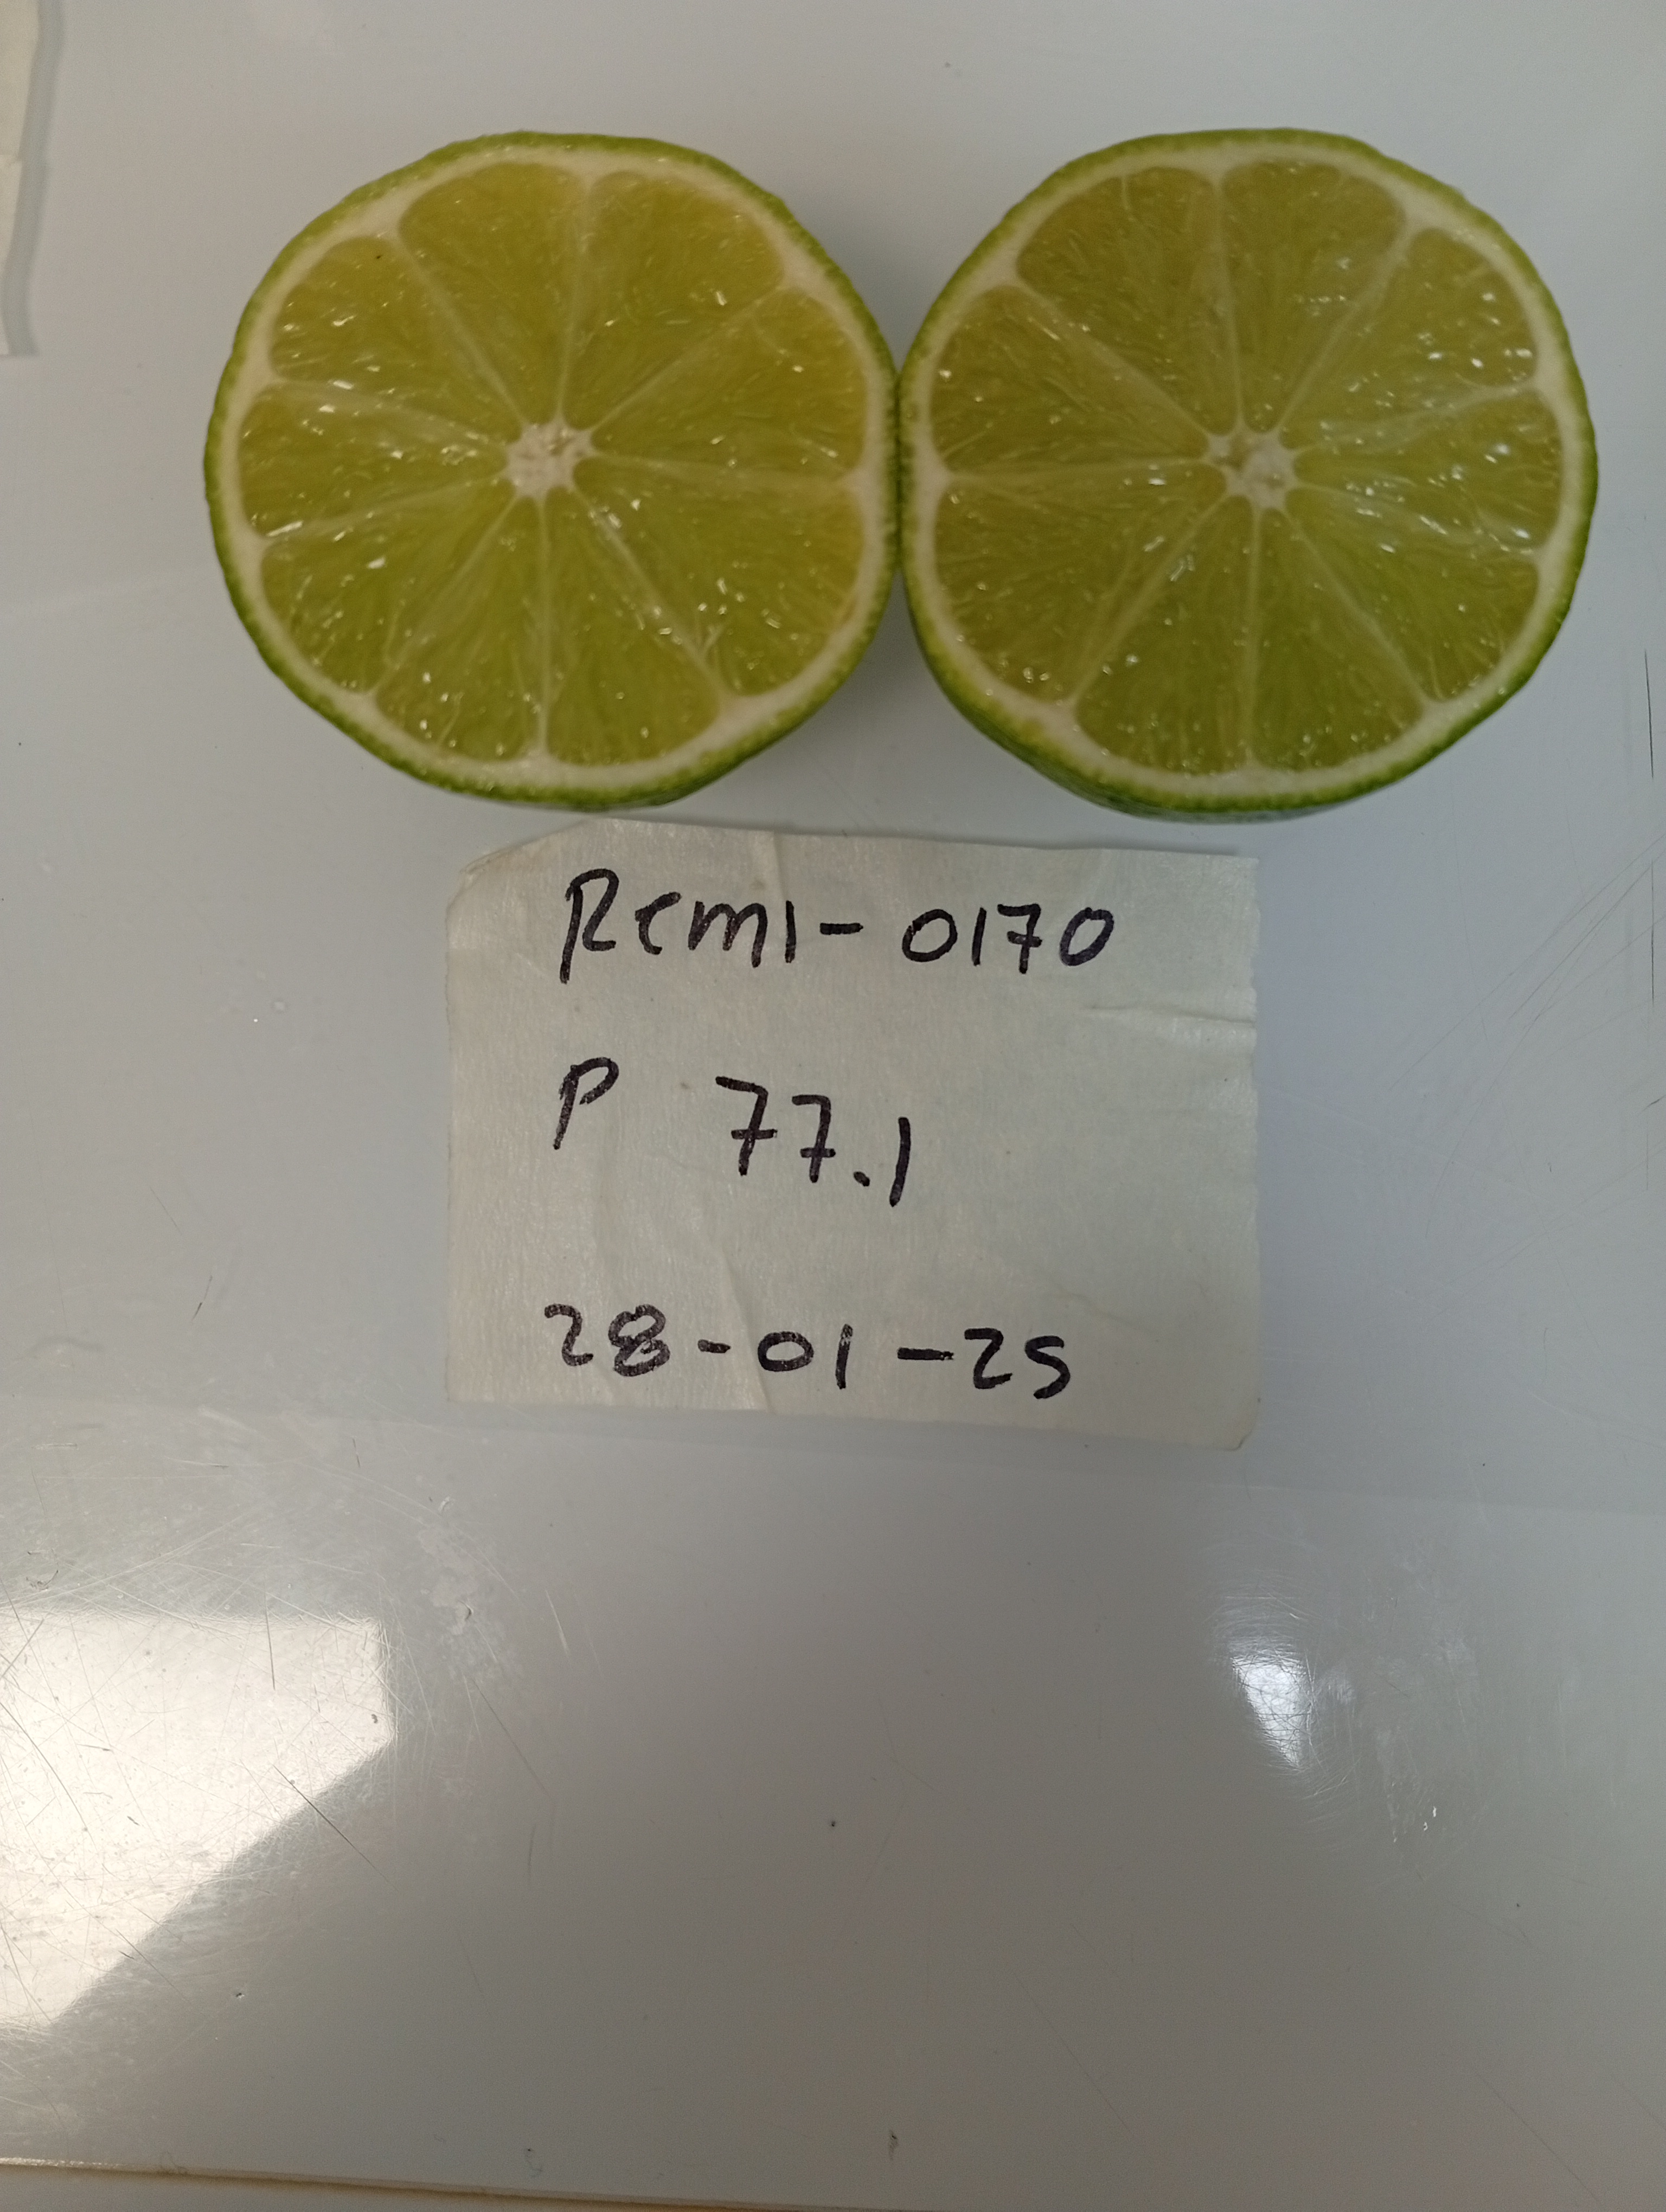 Remi-0170
P 77.1
28-01-25